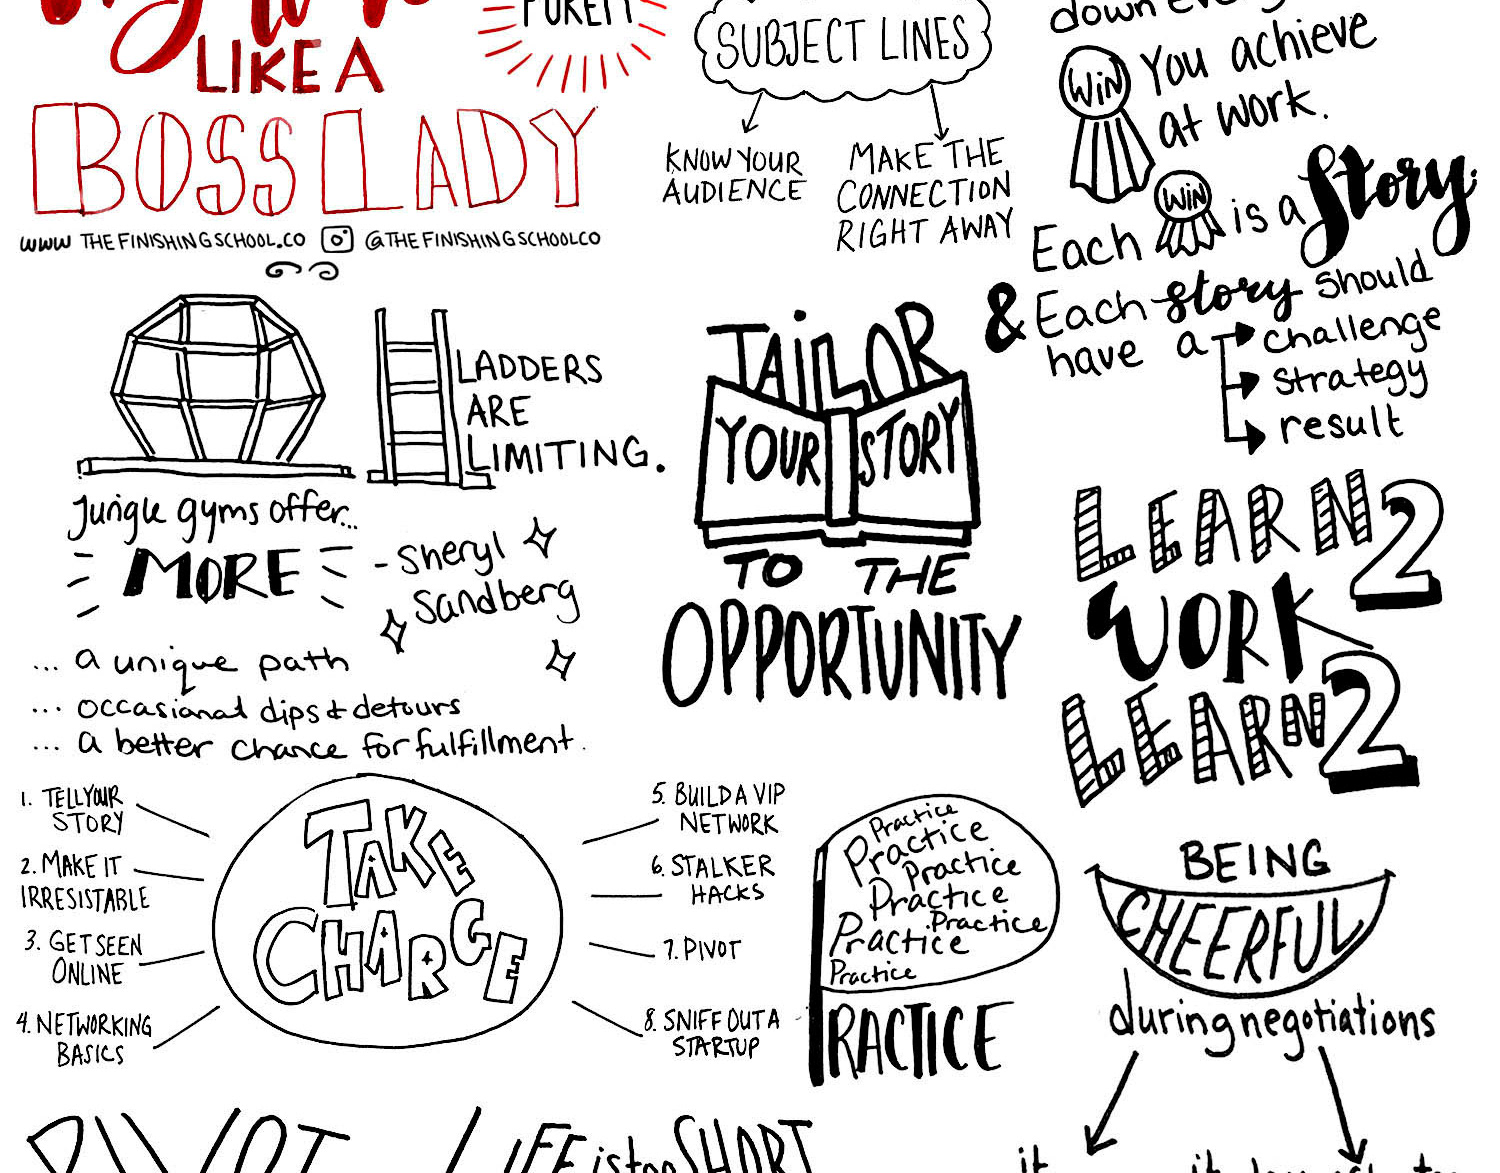 LIKE A
BOSS LADY
WWW THEFINISHINGSCHOOL.CO @THEFINISHINGSCHOOLCO
SUBJECT LINES
KNOW YOUR
AUDIENCE
MAKE THE
CONNECTION
RIGHT AWAY
WIN You achieve
at work.
Each WIN is a Story
& Each story should
have a challenge
strategy
result
LADDERS
ARE
LIMITING.
Jungle gyms offer...
MORE
- Sheryl
Sandberg
... a unique path
... occasional dips & detours
... a better chance for fulfillment.
TAILOR
YOUR STORY
TO THE
OPPORTUNITY
LEARN 2
WORK
LEARN 2
1. TELL YOUR
STORY
2. MAKE IT
IRRESISTABLE
3. GET SEEN
ONLINE
4. NETWORKING
BASICS
TAKE
CHARGE
5. BUILD A VIP
NETWORK
6. STALKER
HACKS
7. PIVOT
8. SNIFF OUT A
STARTUP
Practice
Practice
Practice
Practice
Practice
Practice
Practice
PRACTICE
BEING
CHEERFUL
during negotiations
PIVOT
LIFE is too SHORT
it